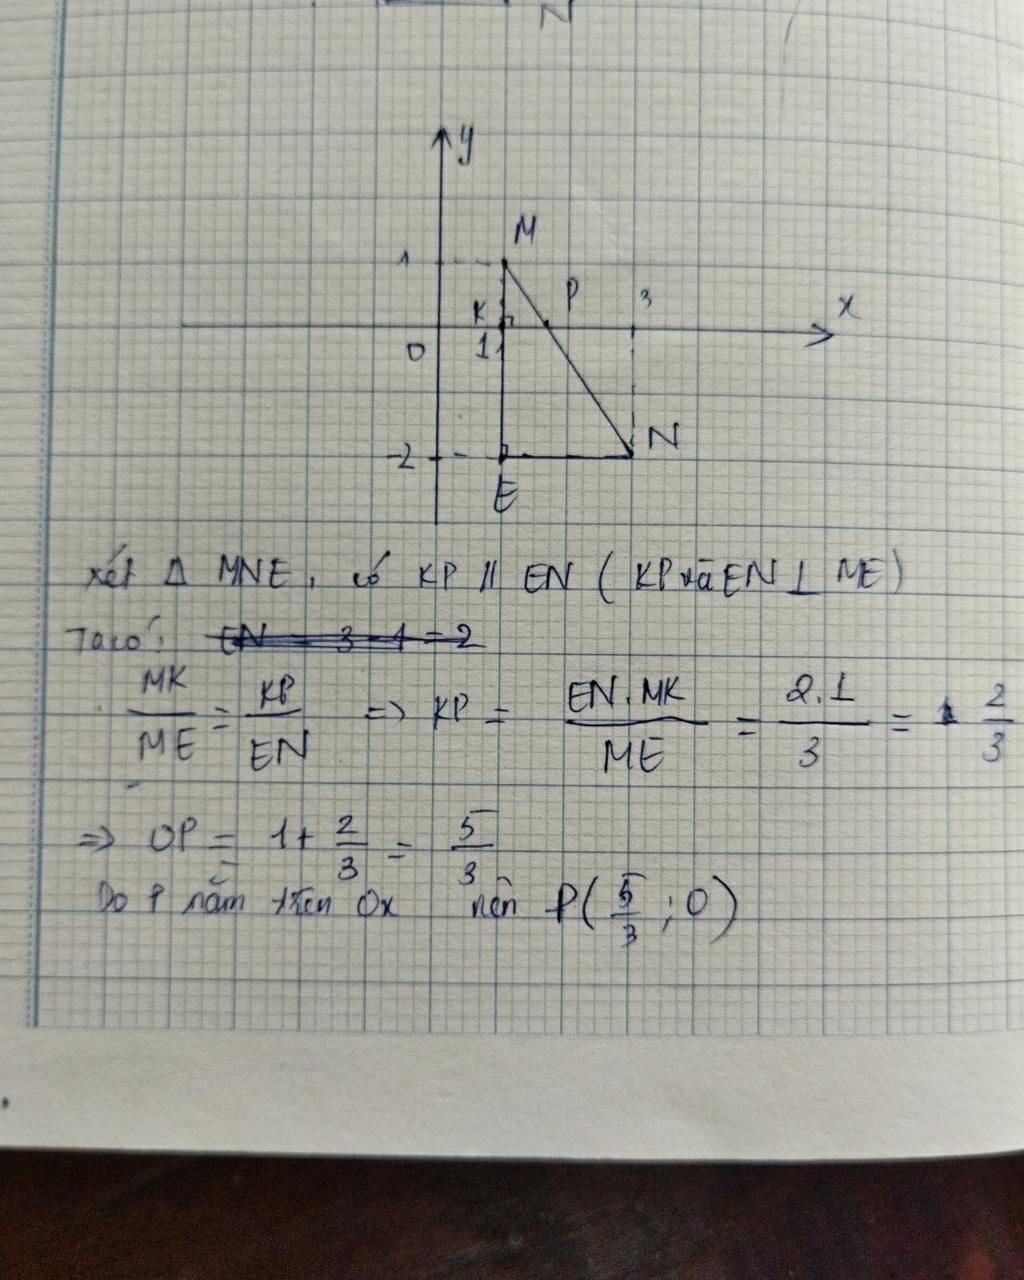 N
y
M
1
K
P
3
x
0
1
-2
N
E
xét Δ MNE, có KP // EN ( KP và EN ⊥ ME)
Ta có: EN = 3 - 1 = 2
MK/ME = KP/EN => KP = EN.MK/ME = 2.1/3 = 2/3
=> OP = 1 + 2/3 = 5/3
Do P nằm trên Ox nên P(5/3 ; 0)